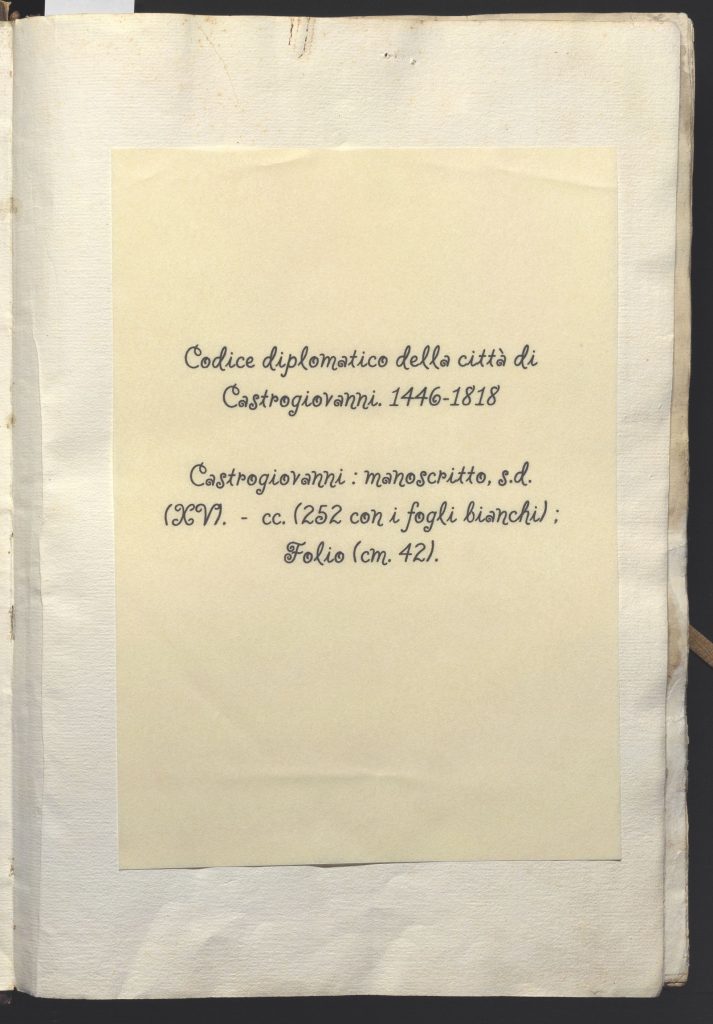 Codice diplomatico della città di
Castrogiovanni. 1446-1818
Castrogiovanni : manoscritto, s.d.
(XV). - cc. (252 con i fogli bianchi) ;
Folio (cm. 42).